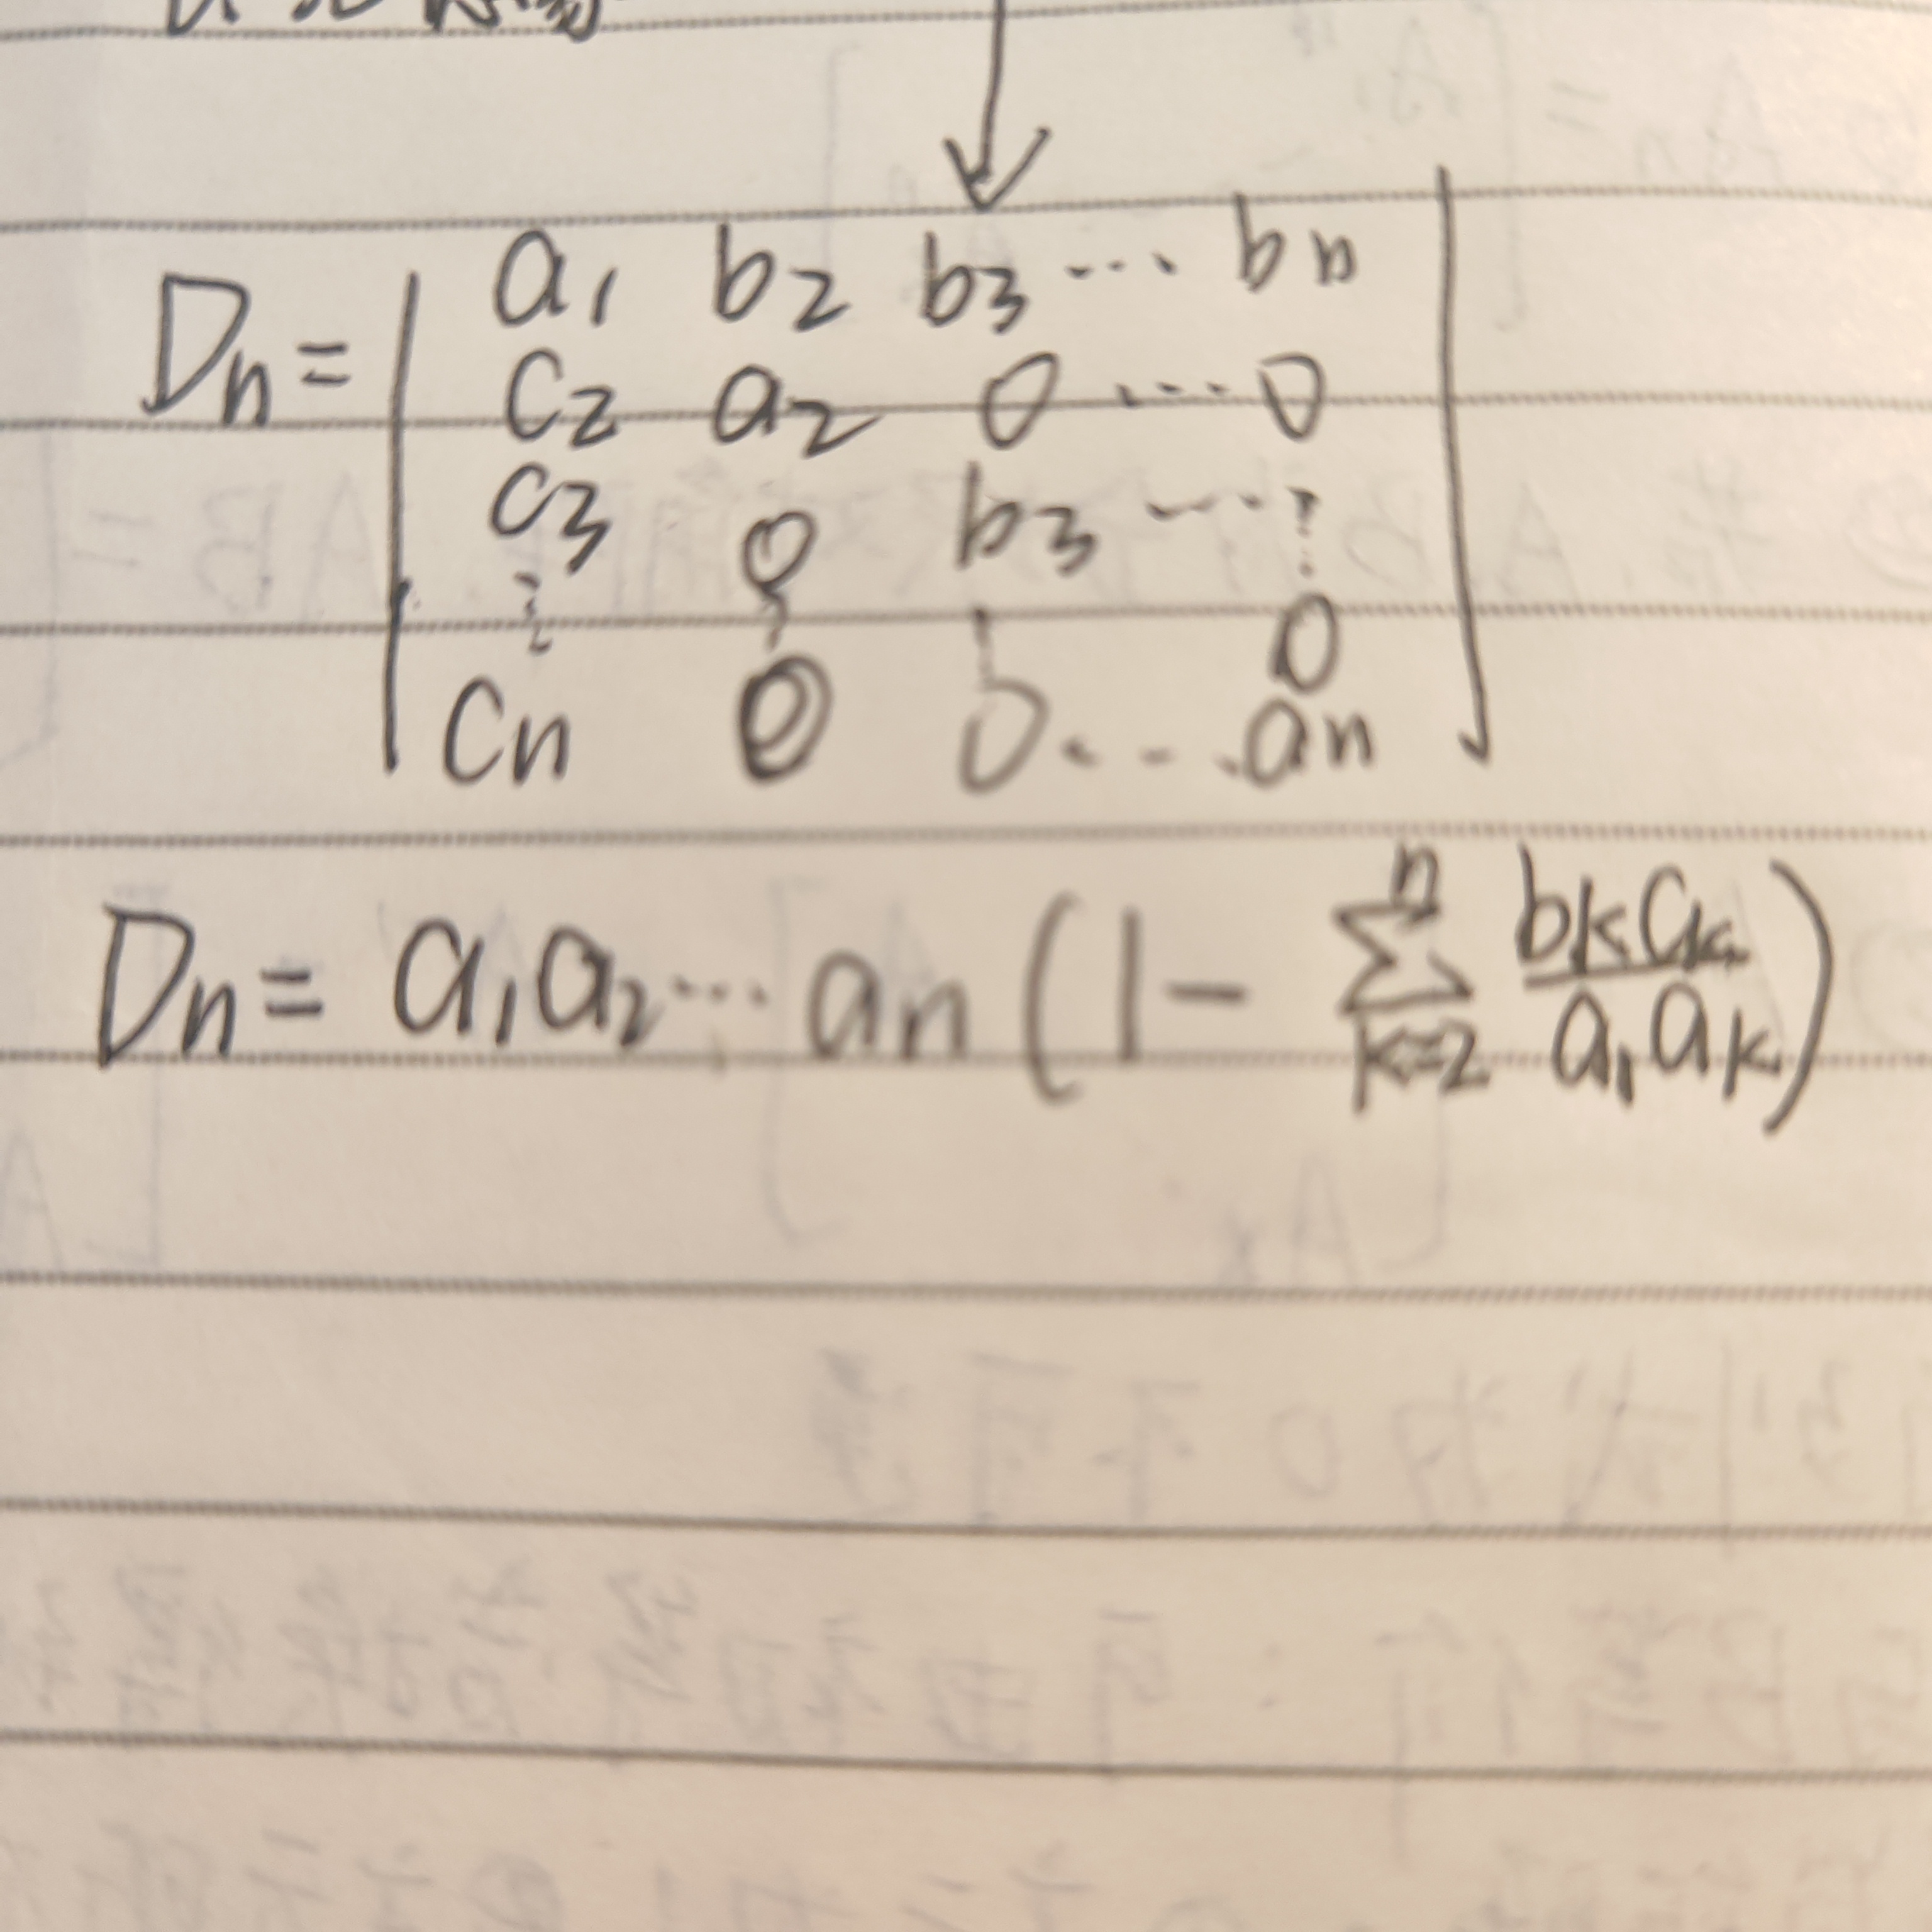 Dn = | a₁ b₂ b₃ ⋯ bn |
| c₂ a₂ 0 ⋯ 0 |
| c₃ 0 b₃ ⋯ ⋮ |
| ⋮ ⋮ ⋮ 0 |
| cn 0 0 ⋯ an |
Dn = a₁a₂⋯an (1 - ∑_{k=2}^{n} \frac{bkck}{a₁ak})